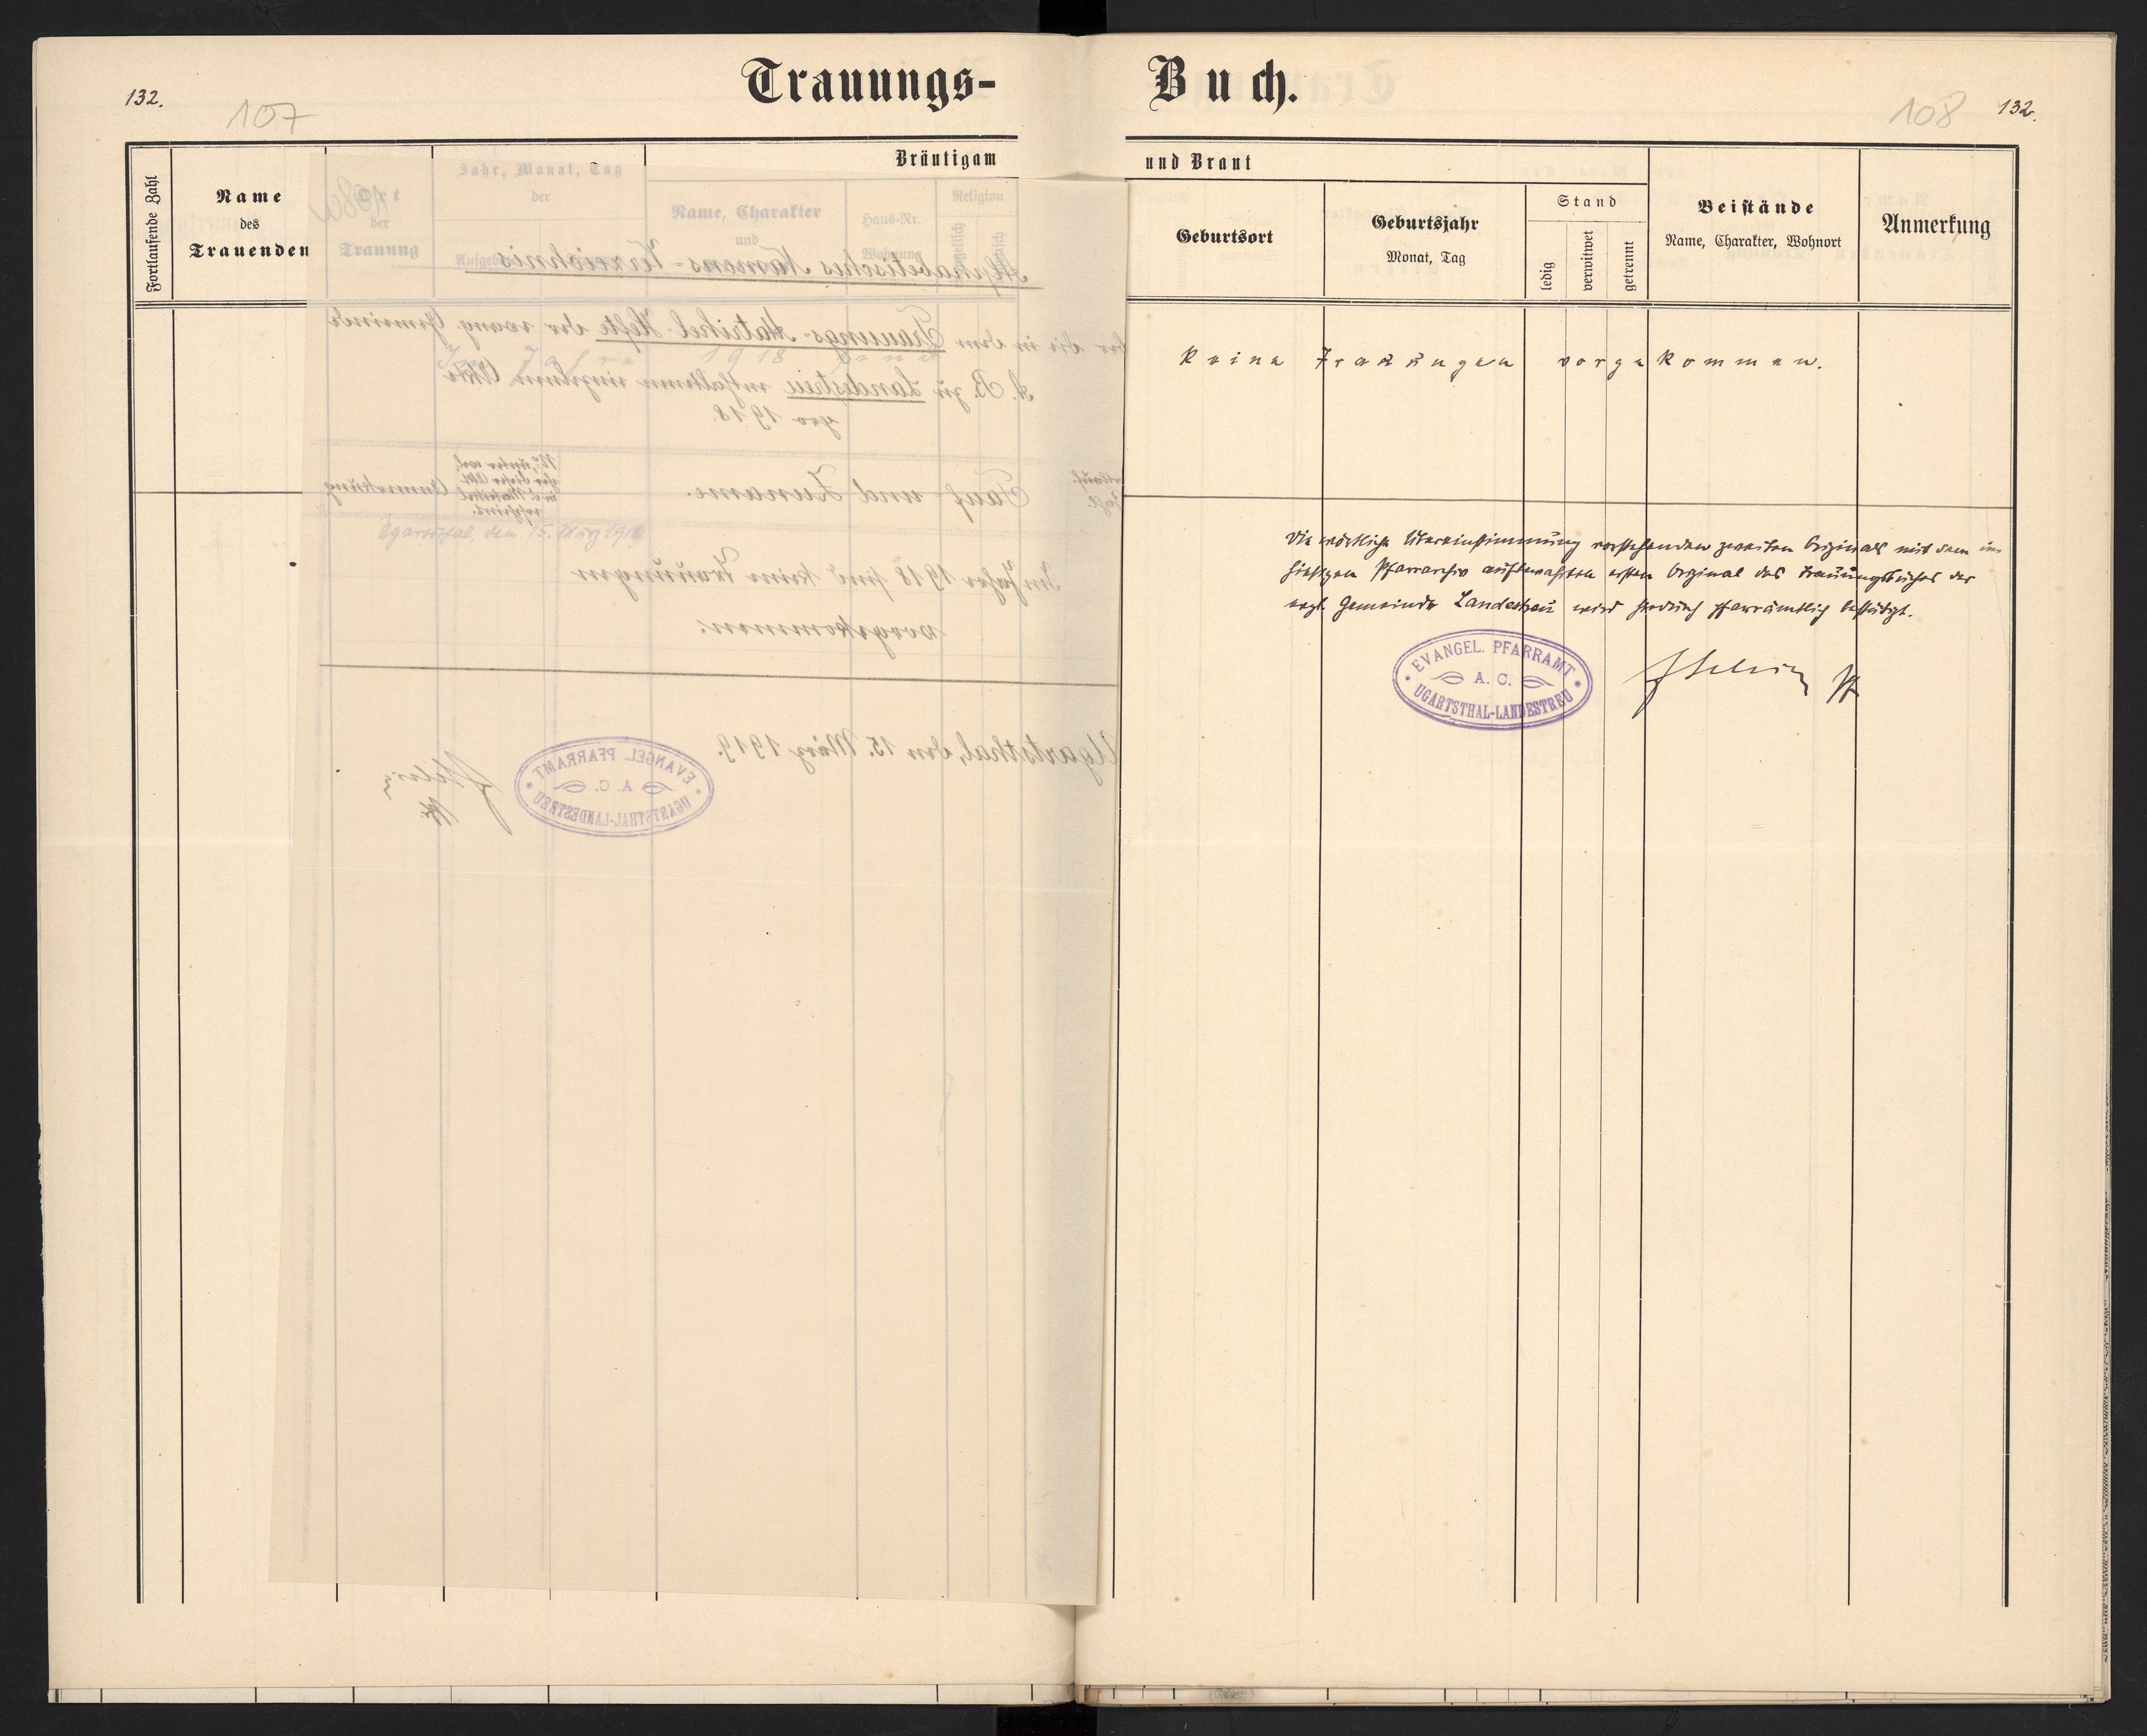 Trauungs- Buch.
132.
107
108
132.
Bräutigam und Braut
Fortlaufende Zahl
Name
des
Trauenden
Ort
der
Trauung
Jahr, Monat, Tag
der
Name, Charakter
und
Haus-Nr.
Wohnung
Religion
Geburtsort
Geburtsjahr
Monat, Tag
Stand
ledig
verwitwet
getrennt
Beistände
Name, Charakter, Wohnort
Anmerkung
Im Jahre 1918 sind
keine Trauungen vorgekommen.
Ugartsthal, den 15. März 1919
Die wörtliche Übereinstimmung vorstehenden zweiten Originals mit dem im
hiesigen Pfarrarchiv aufbewahrten ersten Orginal des Trauungsbuches der
evgl. Gemeinde Landestreu wird hiedurch pfarrämtlich bestätigt.
EVANGEL. PFARRAMT
A. C.
UGARTSTHAL-LANDESTREU
Alphabetisches Namens-Verzeichnis
der die in dem Trauungs-Matrikel-Hefte der evang. Gemeinde
A. B. zu Landestreu enthaltenen einzelnen Akte
pro 1918.
Tauf- und Zuname.
Anmerkung
Im Jahre 1918 sind keine Trauungen
vorgekommen.
Ugartsthal, den 15. März 1919.
EVANGEL. PFARRAMT
A. C.
UGARTSTHAL-LANDESTREU